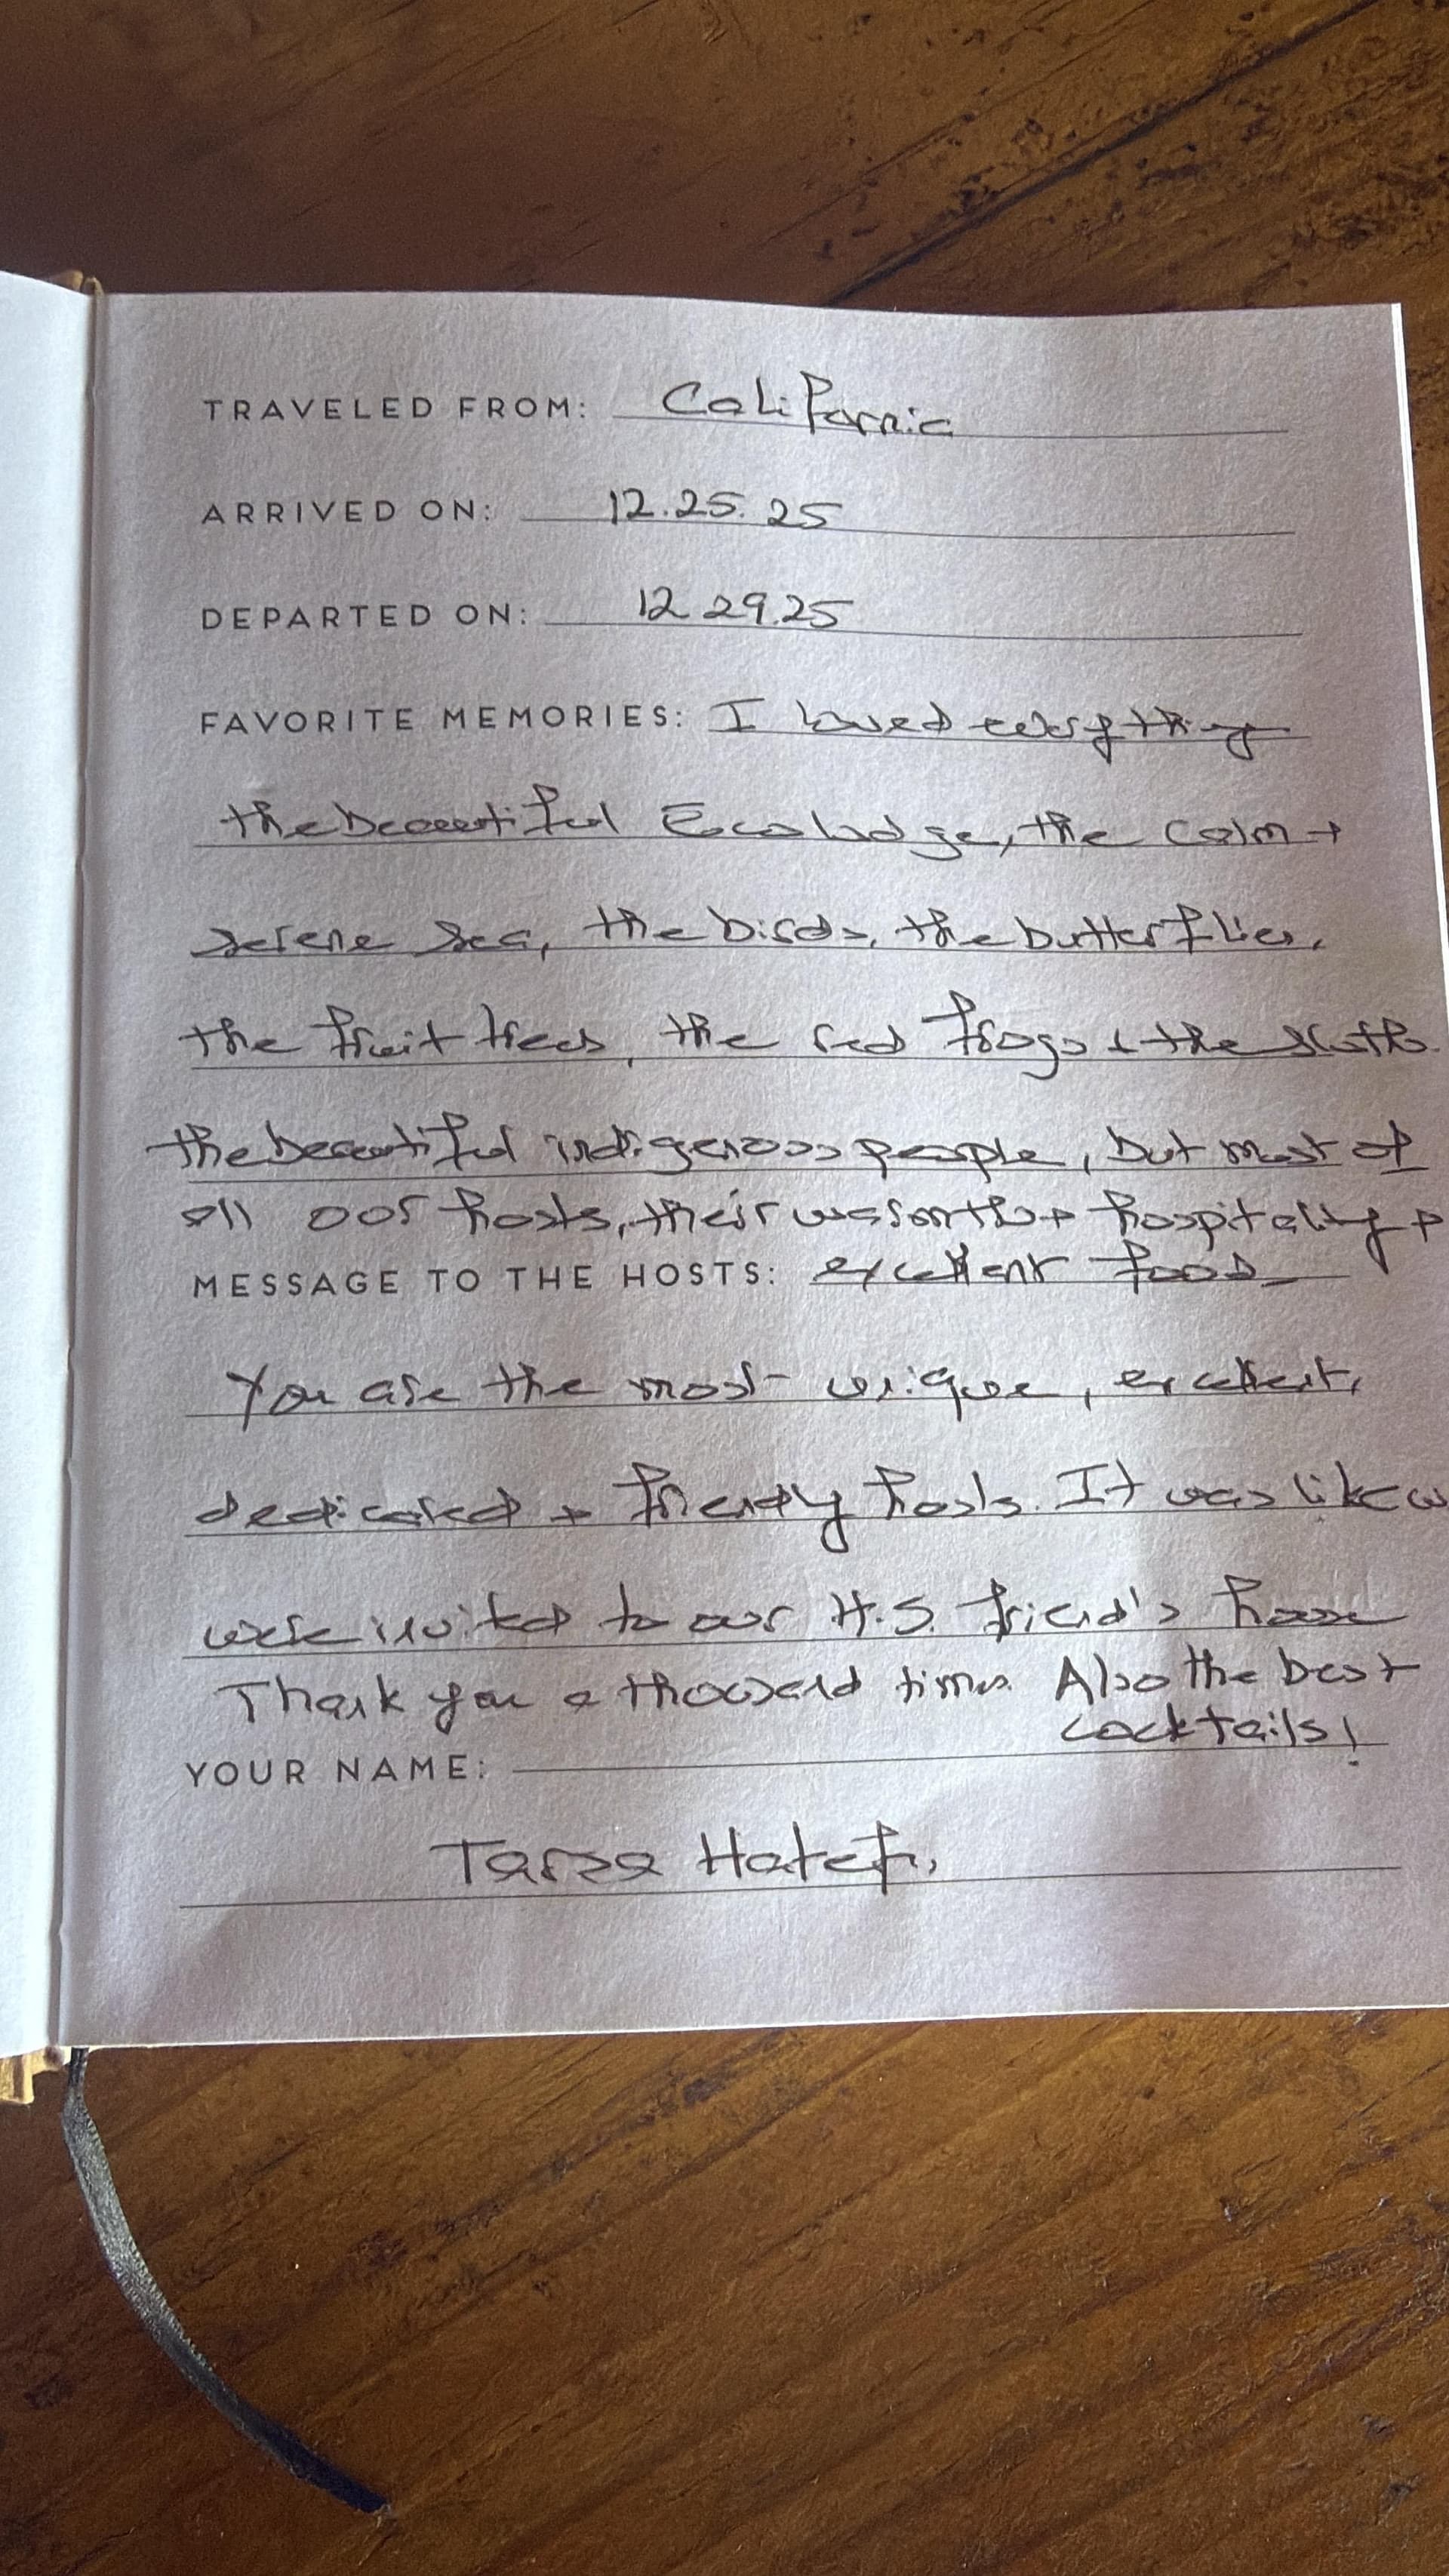 TRAVELED FROM: California
ARRIVED ON: 12.25.25
DEPARTED ON: 12 29.25
FAVORITE MEMORIES: I loved everything
the beautiful Ecolodge, the calm +
serene sea, the birds, the butterflies,
the fruit trees, the red frogs + the sloth.
the beautiful indigenous people, but most of
all our hosts, their warmth + hospitality +
MESSAGE TO THE HOSTS: excellent food
You are the most unique, excellent,
dedicated + friendly hosts. It was like w
were invited to our H.S. friend's home
Thank you a thousand times. Also the best
cocktails!
YOUR NAME:
Hatefi